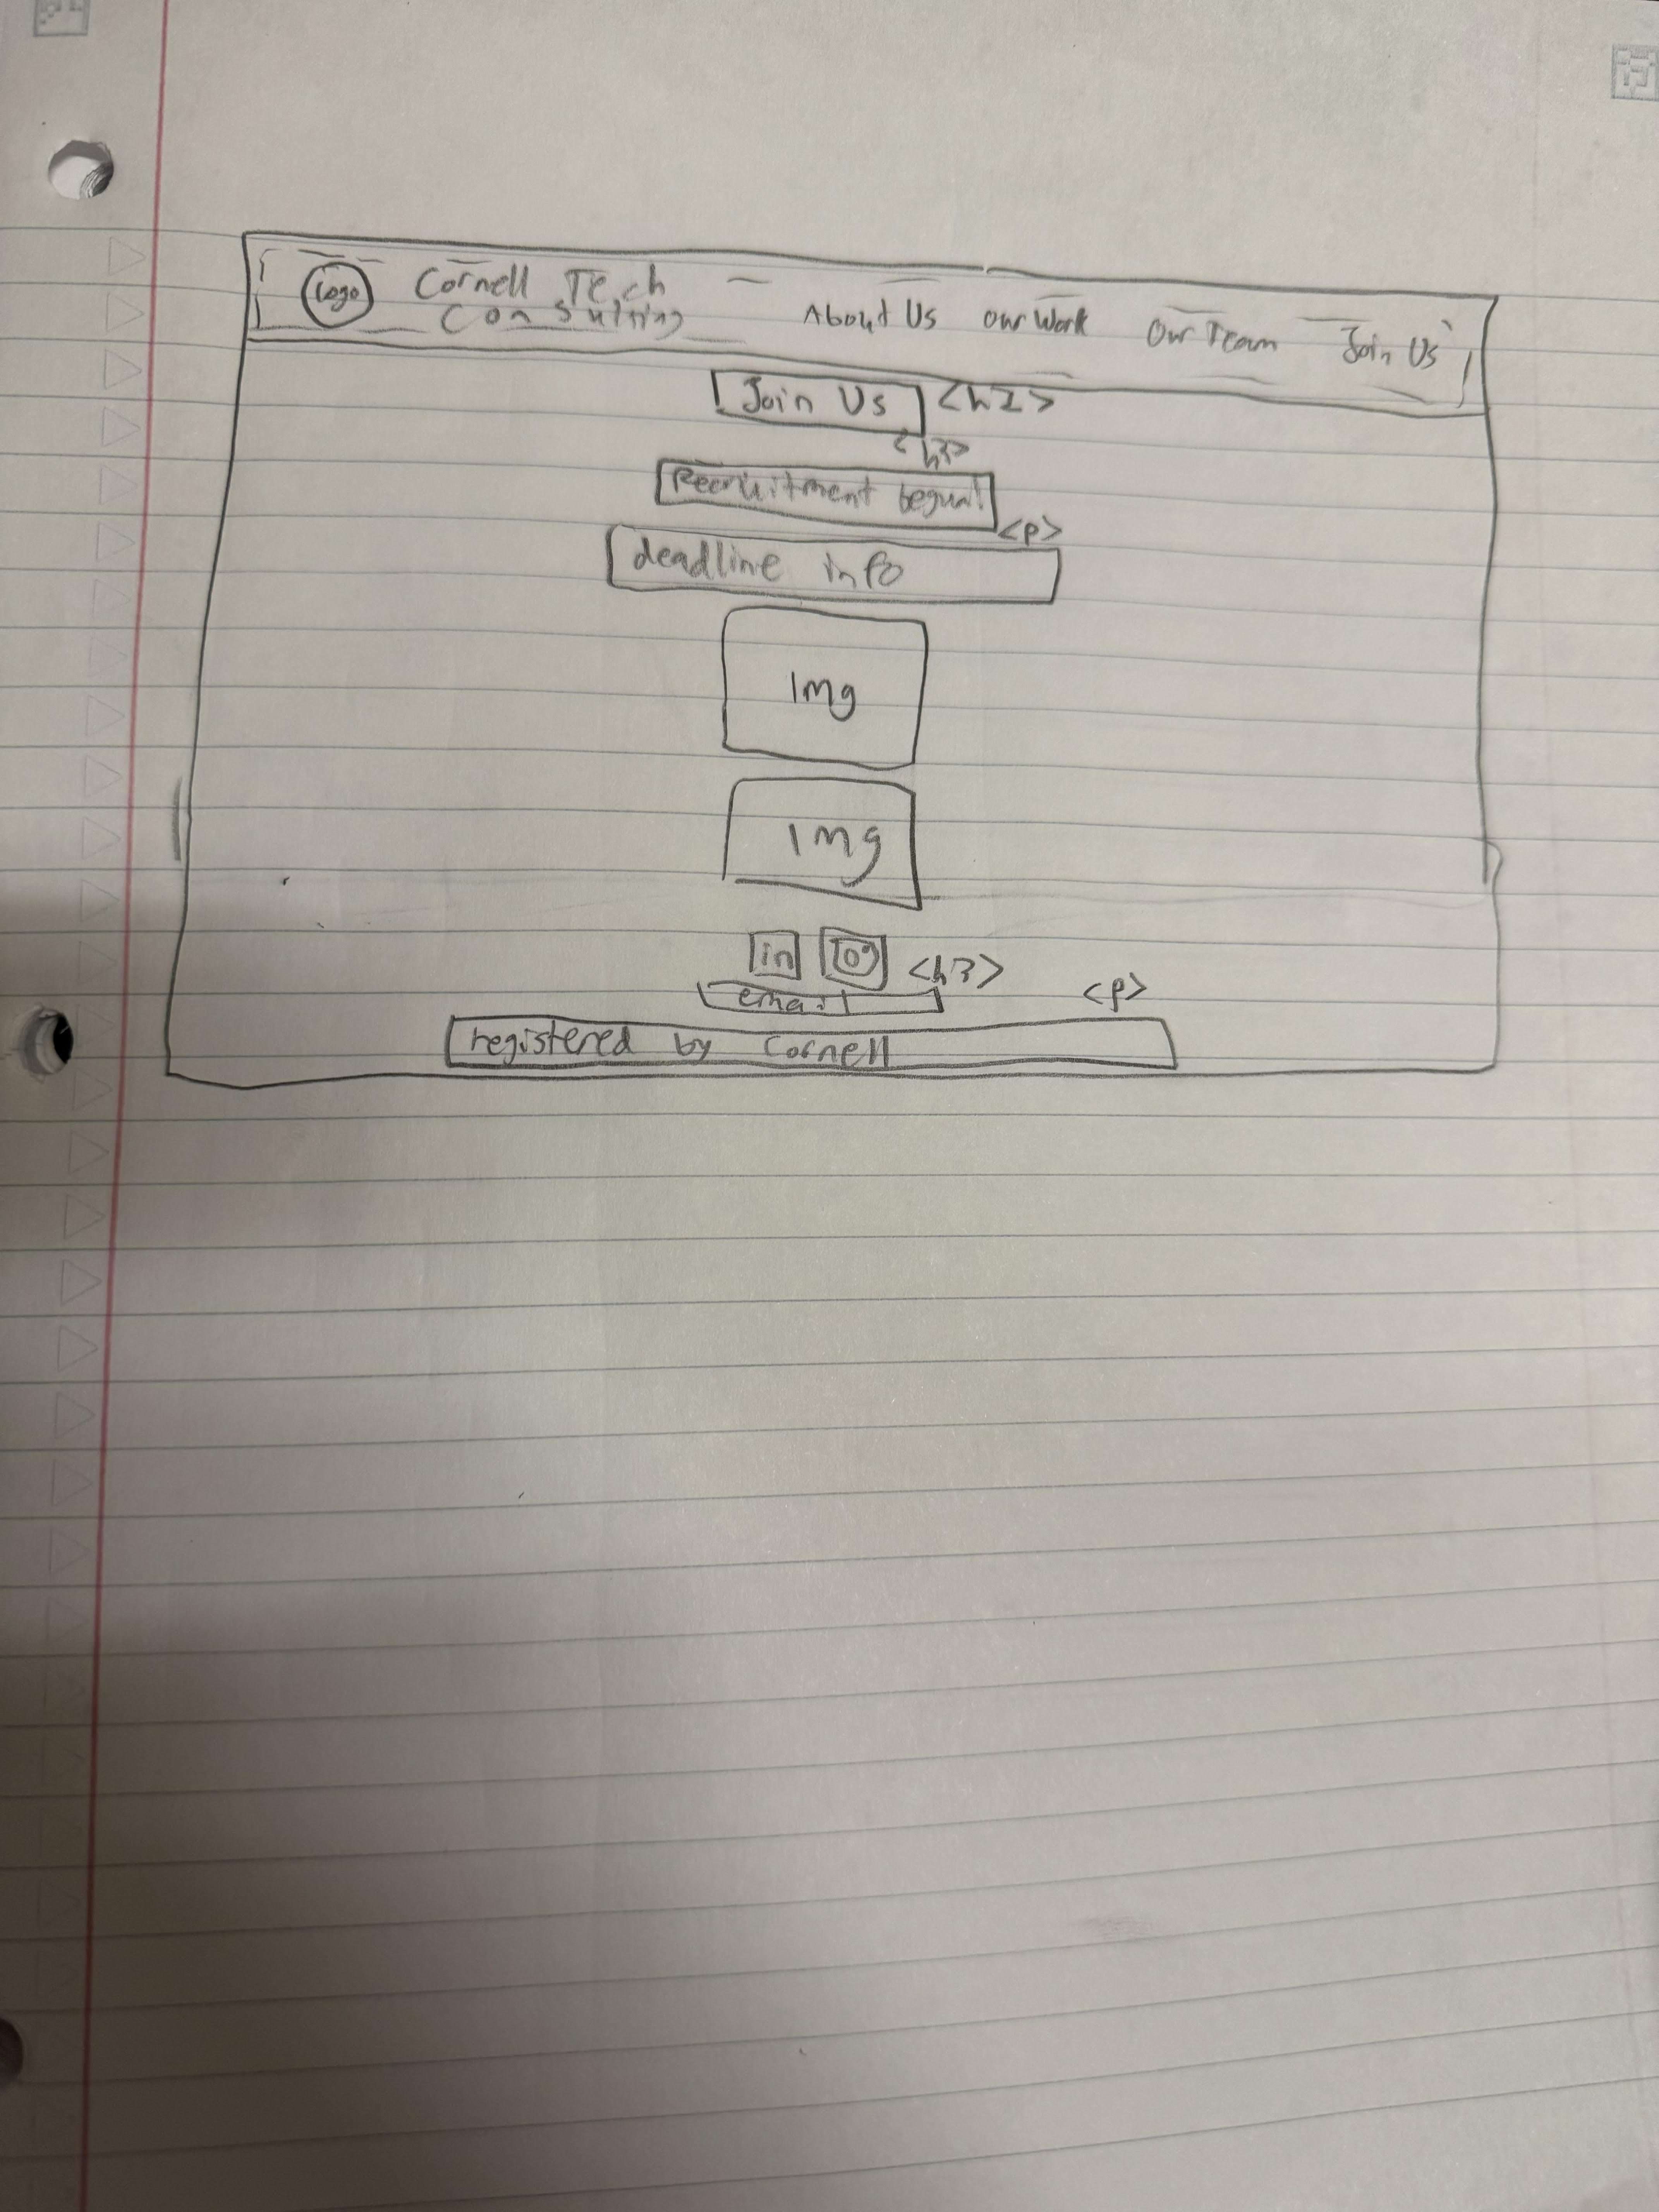 logo
Cornell Tech
Consulting
About Us our Work Our Team Join Us
Join Us <h2>
<h3>
Recruitment begun!
<p>
deadline info
Img
Img
in <h3>
email <p>
registered by Cornell